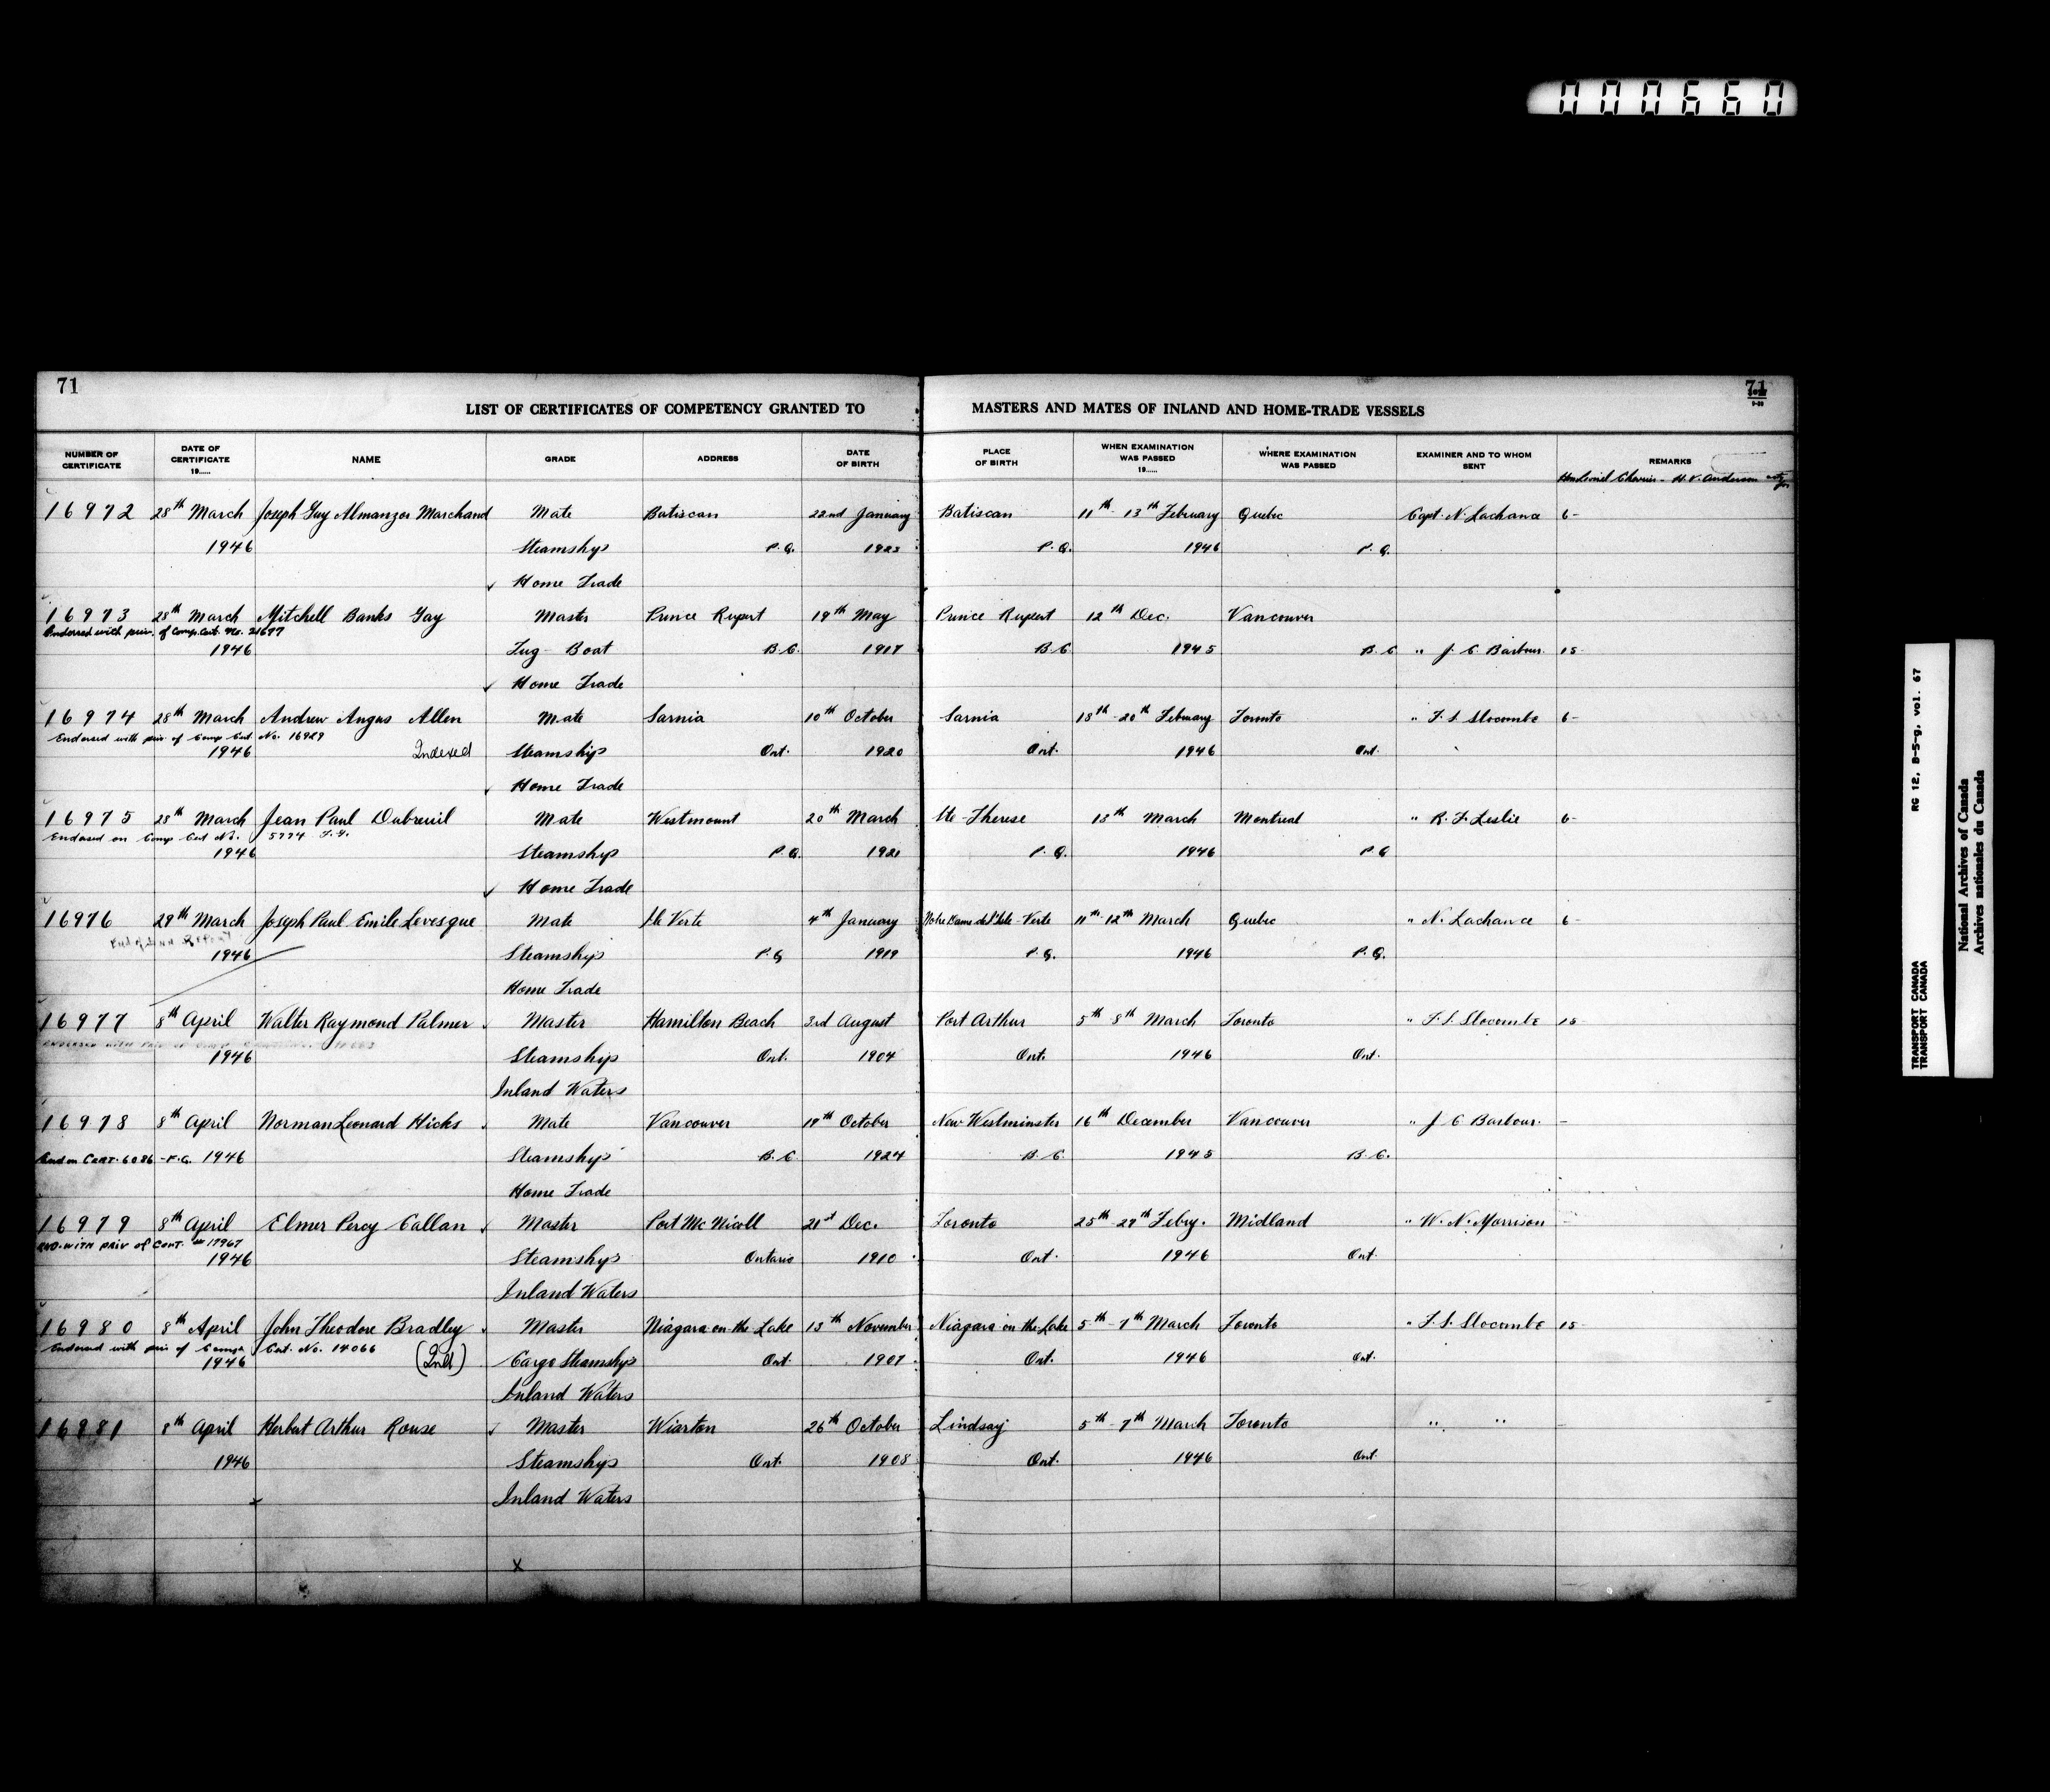 000660
71
71
LIST OF CERTIFICATES OF COMPETENCY GRANTED TO MASTERS AND MATES OF INLAND AND HOME-TRADE VESSELS
NUMBER OF CERTIFICATE DATE OF CERTIFICATE 19...... NAME GRADE ADDRESS DATE OF BIRTH PLACE OF BIRTH WHEN EXAMINATION WAS PASSED 19...... WHERE EXAMINATION WAS PASSED EXAMINER AND TO WHOM SENT REMARKS
Hon Lionel Chevrier - H. V. Anderson
16972 28th March Joseph Guy Almanzor Marchand Mate Batiscan 22nd January Batiscan 11th - 13th February Quebec Capt. N. Lachance 6-
1946 Steamships P.Q. 1923 P.Q. 1946 P.Q.
Home Trade
16973 28th March Mitchell Banks Gay Master Prince Rupert 19th May Prince Rupert 12th Dec. Vancouver
Endorsed with priv. of Comp. Cert. No. 21677
1946 Tug Boat B.C. 1917 B.C. 1945 B.C. " J. C. Barbour 15-
Home Trade
16974 28th March Andrew Angus Allen Mate Sarnia 10th October Sarnia 18th - 20th February Toronto " F. S. Slocombe 6-
Endorsed with priv. of Comp Cert No. 16929
1946 Indexed Steamships Ont. 1920 Ont. 1946 Ont.
Home Trade
16975 28th March Jean Paul Dubreuil Mate Westmount 20th March Ste-Therese 13th March Montreal " R. F. Leslie 6-
Endorsed on Comp Cert No. 5774 F.G.
1946 Steamship P.Q. 1921 P.Q. 1946 P.Q
Home Trade
16976 29th March Joseph Paul Emile Levesque Mate Ile Verte 4th January Notre Dame de l'Isle-Verte 11th-12th March Quebec " N. Lachance 6-
1946 Steamships P.Q 1919 P.Q. 1946 P.Q.
Home Trade
16977 8th April Walter Raymond Palmer Master Hamilton Beach 3rd August Port Arthur 5th 8th March Toronto " F. S. Slocombe 15-
1946 Steamships Ont. 1904 Ont. 1946 Ont.
Inland Waters
16978 8th April Norman Leonard Hicks Mate Vancouver 19th October New Westminster 16th December Vancouver " J C Barbour. -
End on CERT. 6086 - F.G. 1946 Steamships B.C. 1924 B.C. 1945 B.C.
Home Trade
16979 8th April Elmer Percy Callan Master Port McNicoll 21st Dec. Toronto 25th - 27th Febry. Midland " W. N. Morrison -
END. WITH PRIV of CERT. # 17967
1946 Steamships Ontario 1910 Ont. 1946 Ont.
Inland Waters
16980 8th April John Theodore Bradley Master Niagara on the Lake 13th November Niagara on the Lake 5th - 7th March Toronto " F. S. Slocombe 15-
Endorsed with priv of Comp. Cert. No. 14066
1946 (Ind) Cargo Steamships Ont. 1907 Ont. 1946 Ont.
Inland Waters
16981 8th April Herbert Arthur Rouse Master Wiarton 26th October Lindsay 5th - 7th March Toronto " " -
1946 Steamships Ont. 1908 Ont. 1946 Ont.
Inland Waters
x
RG 12, B-5-g, vol. 67
TRANSPORT CANADA
TRANSPORT CANADA
National Archives of Canada
Archives nationales du Canada